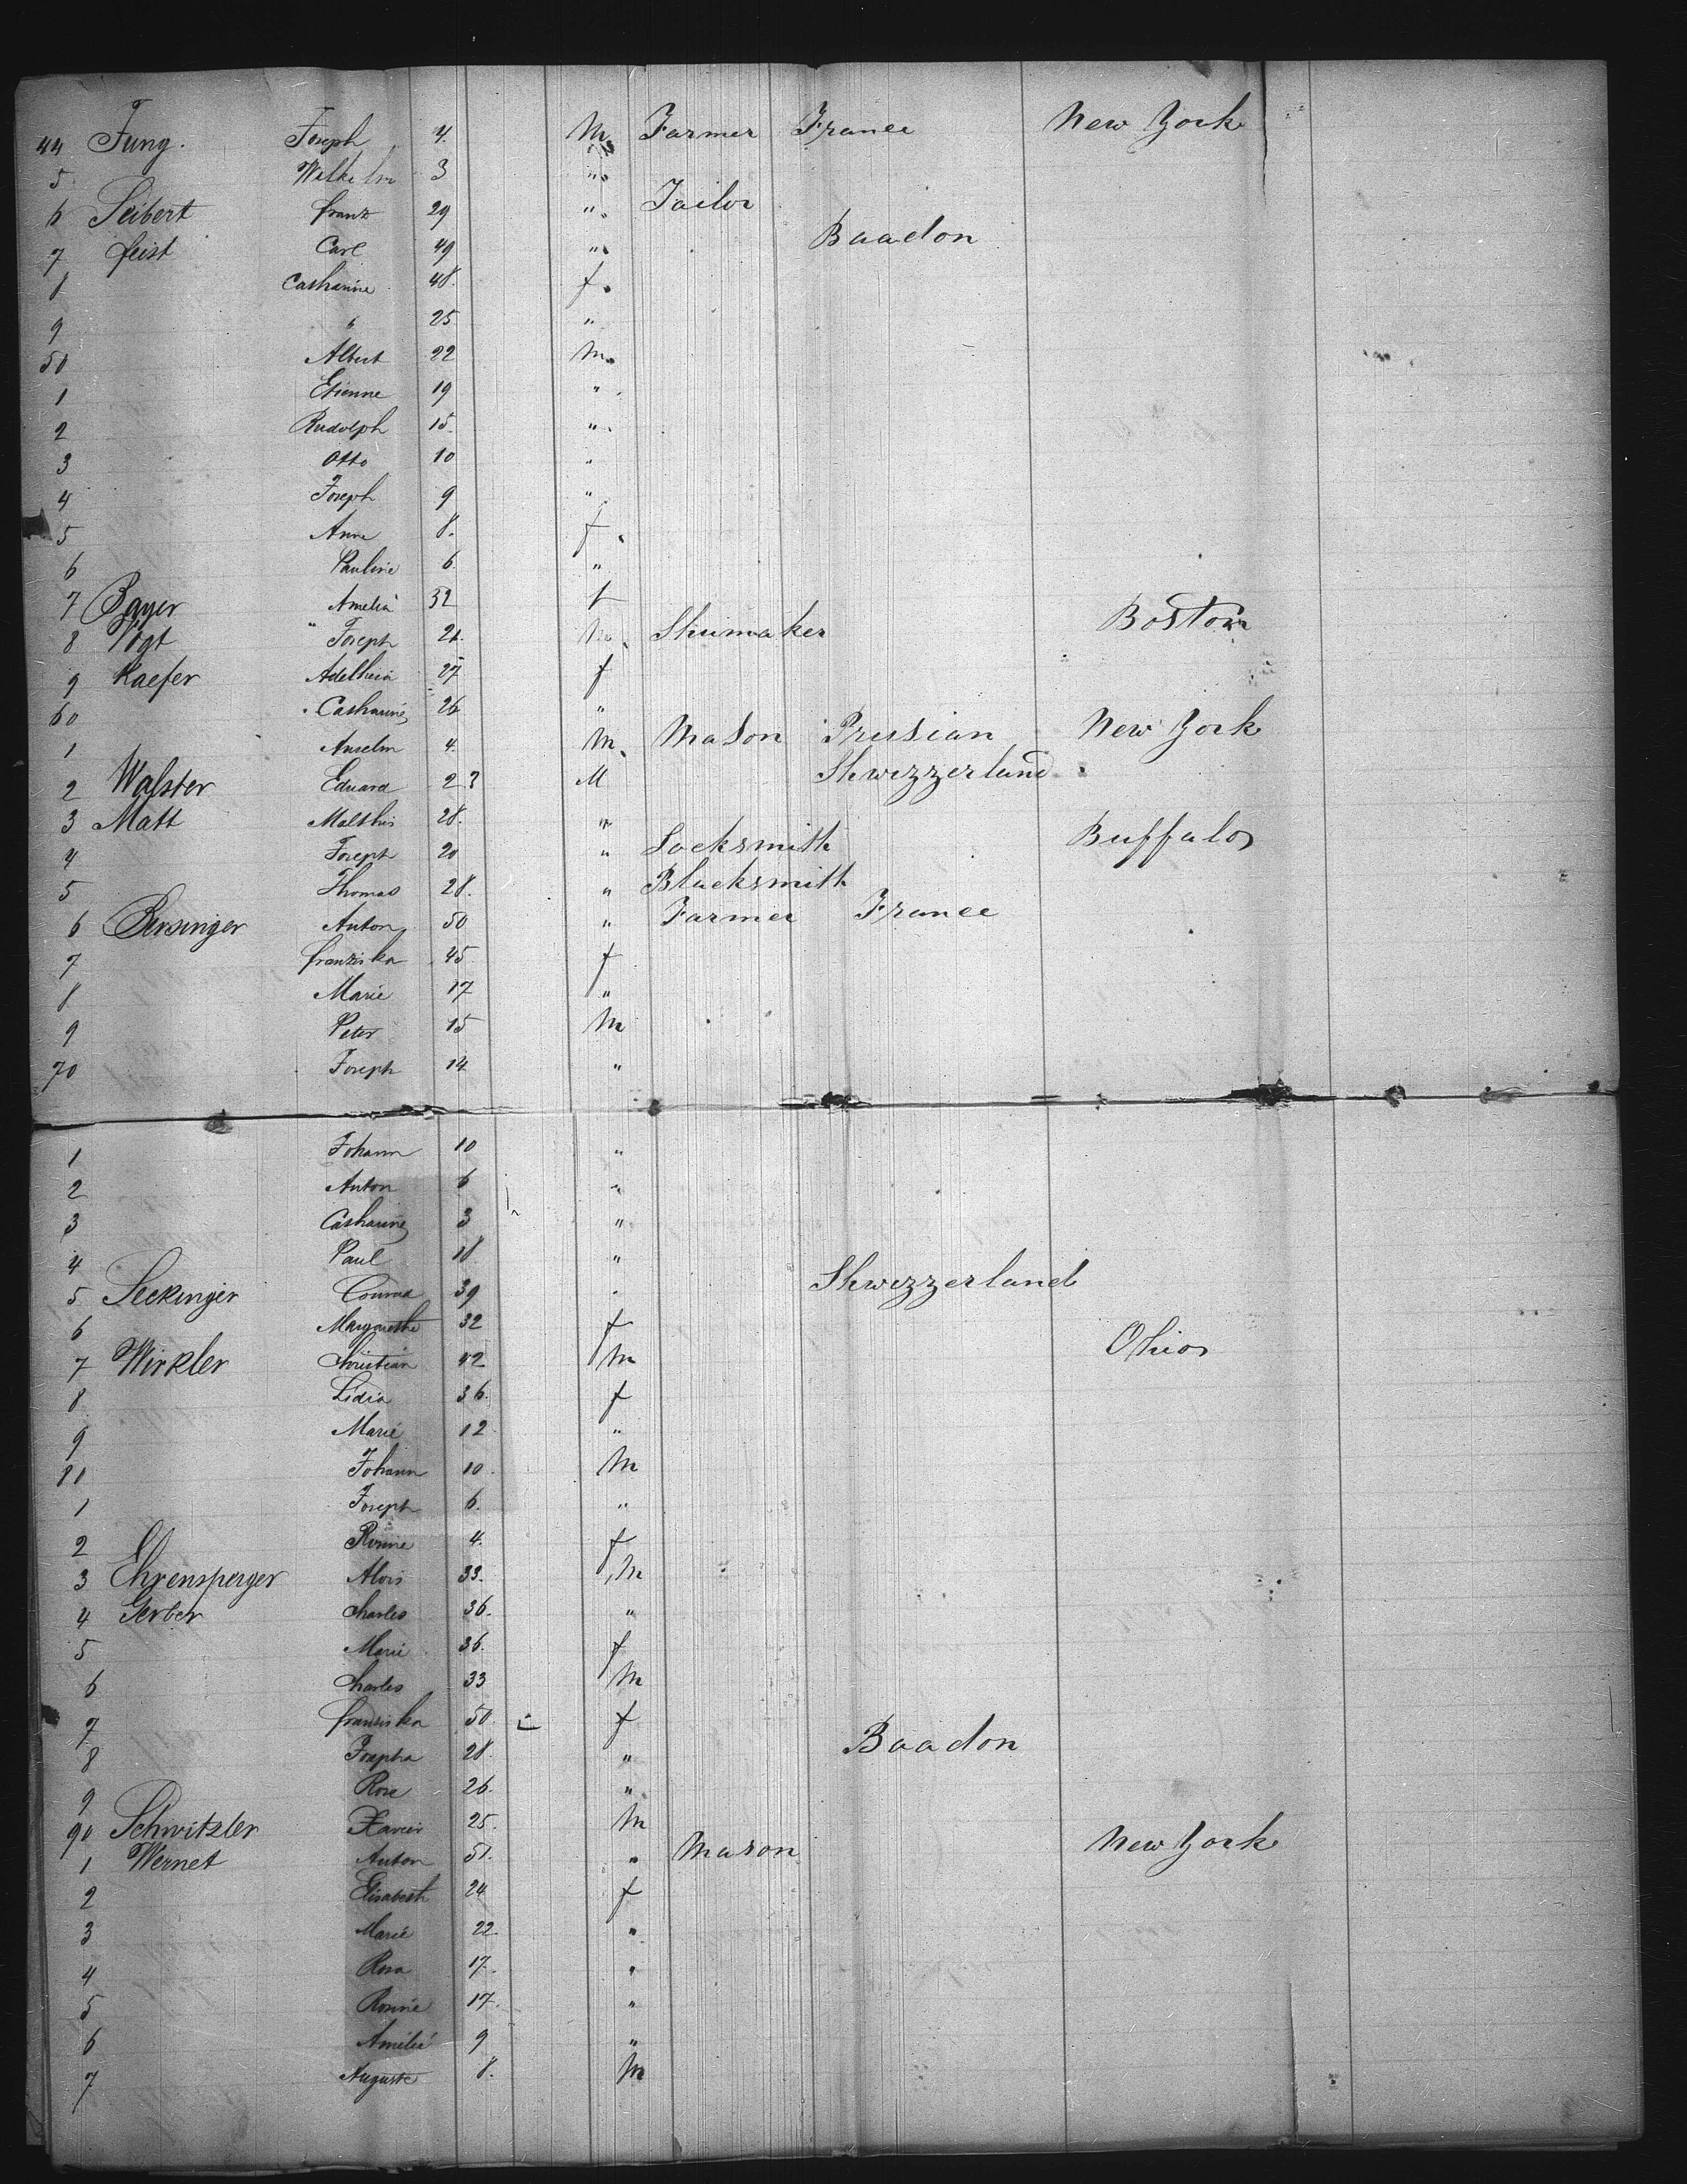 44 Jung. Joseph 4. M. Farmer France New York
5 Wilhelm 3 "
6 Seibert franz 29 " Tailor
7 feist Carl 49 " Baadon
8 Catharine 48. f.
9 " 25 "
50 Albert 22 M.
1 Etienne 19 "
2 Rudolph 15. "
3 Otto 10 "
4 Joseph 9 "
5 Anne 8. f.
6 Pauline 6 "
7 Bayer Amelia 32 f
8 Vogt " Joseph 21. M. Shumaker Boston
9 Kaefer Adelheid 27 f
60 Catharine 26 "
1 Anselm 4. M. Mason Prusian New York
2 Walster Eduard 23 M Shwizzerland
3 Matt Malthis 28. "
4 Joseph 20 " Locksmith Buffalo
5 Thomas 28. " Blacksmith
6 Bersinger Anton 50 " Farmer France
7 franziska 45 f
8 Marie 17 "
9 Peter 15 M
70 Joseph 14 "
1 Johann 10 "
2 Anton 6 "
3 Catharine 3 "
4 Paul 18 "
5 Seckinger Conrad 39 " Shwizzerland
6 Margarethe 32 f
7 Wirkler Christian 42 M Ohio
8 Lidia 36. f
9 Marie 12 "
80 Johann 10. M
1 Joseph 6. "
2 Rosine 4. f
3 Ehrensperger Alois 33. M
4 Gerber Charles 36. "
5 Marie 36. f
6 Charles 33 M
7 franziska 50 f
8 Josepha 28. " Baadon
9 Rose 26. "
90 Schwitzler Xavier 25. M
1 Wernet Anton 51. " Mason New York
2 Elisabeth 24 f
3 Marie 22. "
4 Rosa 17. "
5 Rosine 17. "
6 Amilie 9 "
7 Auguste 8. M